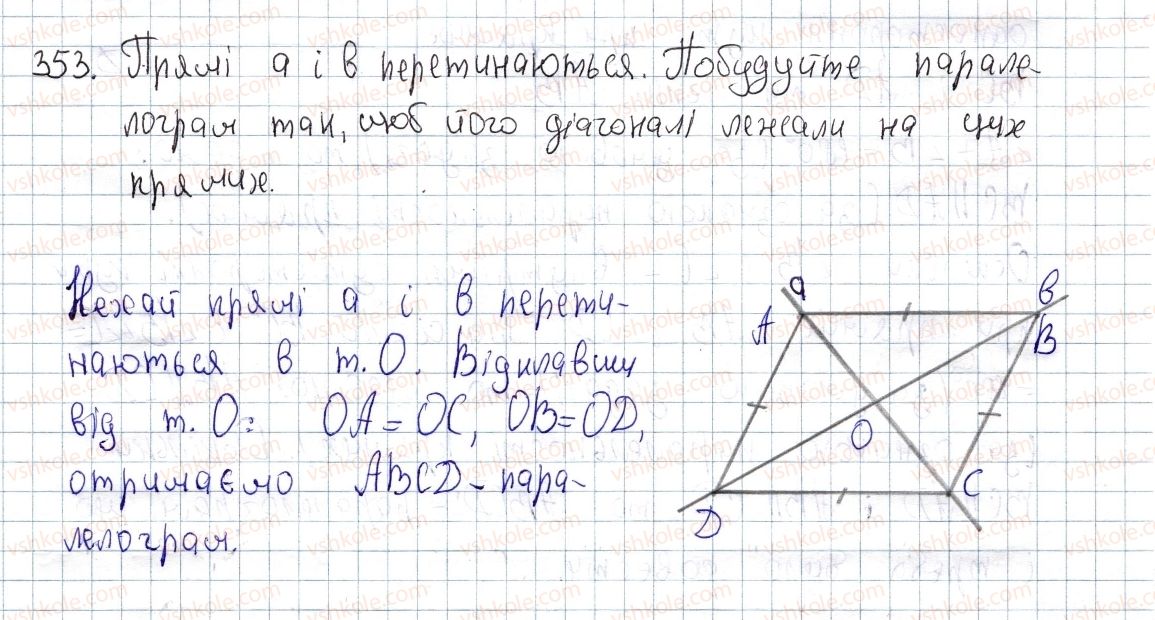 353. Прямі а і в перетинаються. Побудуйте парале-
лограм так, щоб його діагоналі лежали на цих
прямих.
Нехай прямі а і в перети-
наються в т. О. Відклавши
від т. О: ОА = ОС, ОВ = ОD,
отримаємо ABCD - пара-
лелограм.
а
в
A
B
O
C
D